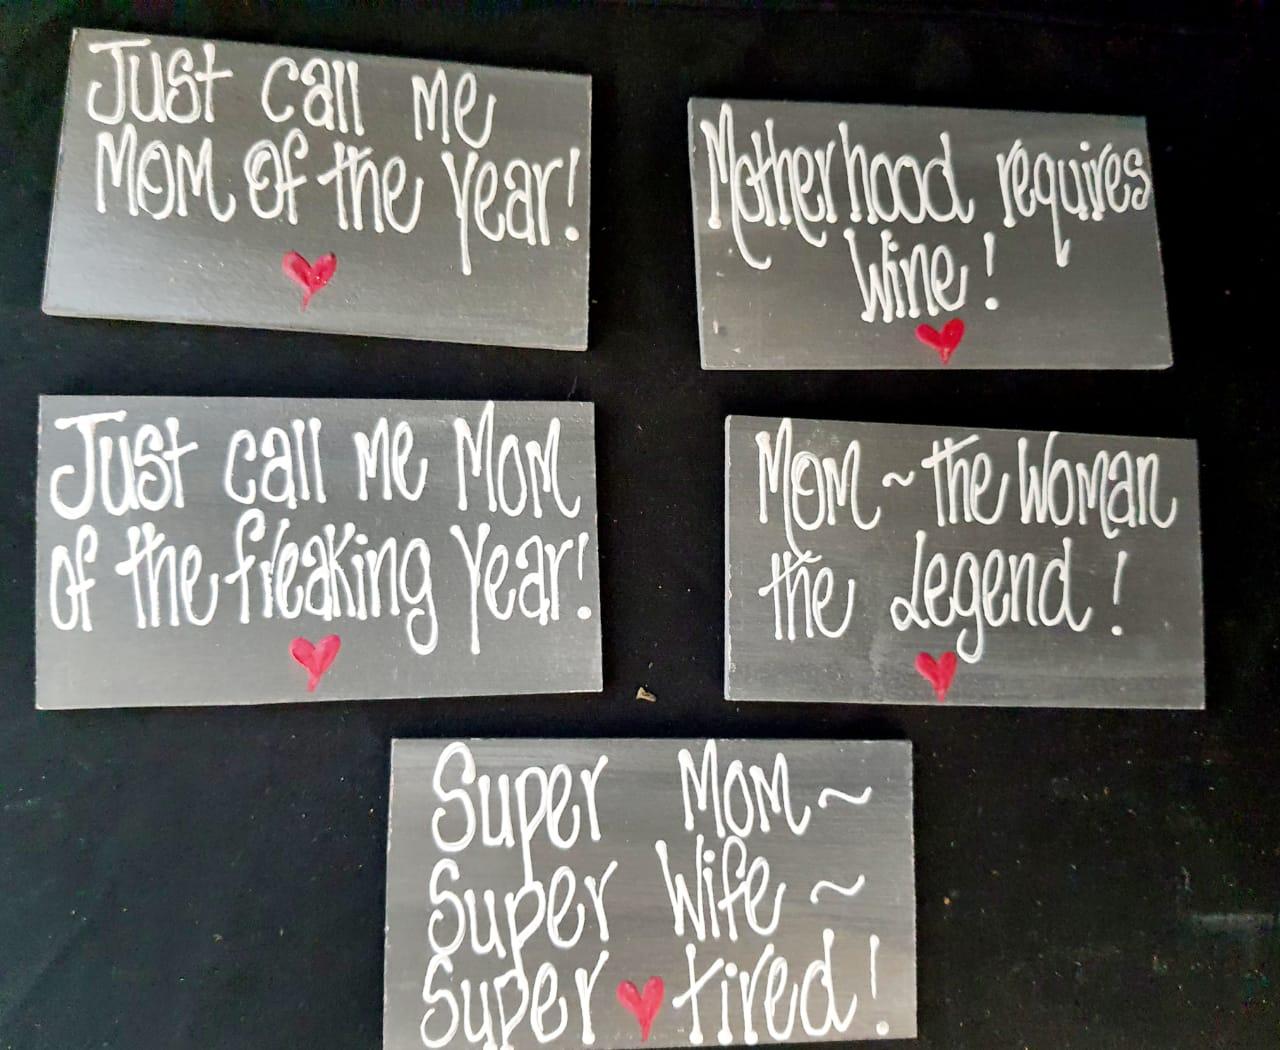 Just call me
Mom of the year!
Motherhood requires
Wine!
Just call me Mom
of the freaking year!
Mom ~ the Woman
the Legend!
Super Mom ~
Super Wife ~
Super tired!